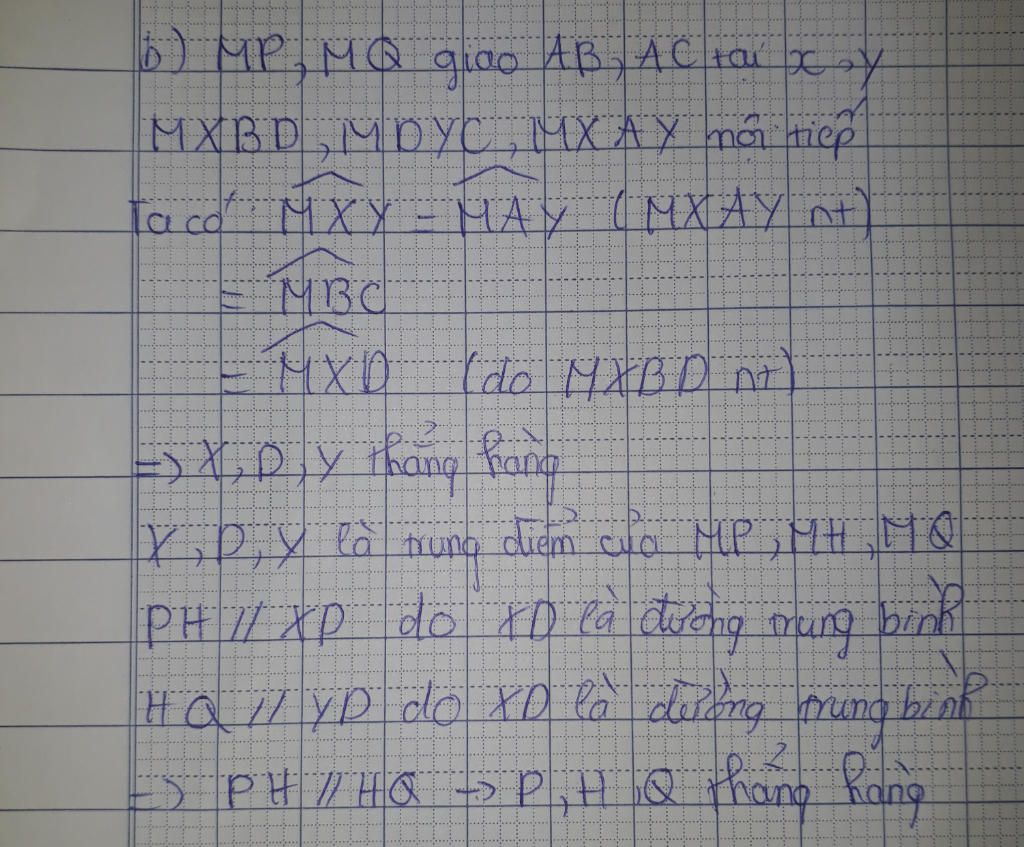 b) MP, MQ giao AB, AC tại x, y
MXBD, MDYC, MXAY nội tiếp
Ta có: MXY = MAY (MXAY nt)
= MBC
= MXD (do MXBD nt)
=> X, D, Y thẳng hàng
X, D, Y là trung điểm của MP, MH, MQ
PH // XD do XD là đường trung bình
HQ // YD do XD là đường trung bình
=> PH // HQ -> P, H, Q thẳng hàng